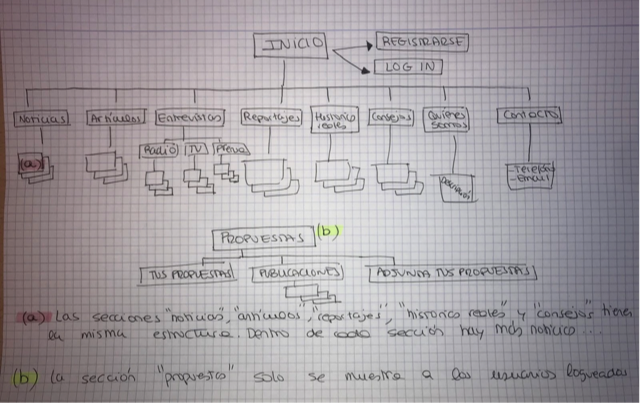 INICIO
REGISTRARSE
LOG IN
Noticias Artículos Entrevistas Reportajes Historico reales Consejos Quienes somos Contacto
(a) Radio TV Prensa
- Telefono
- Email
PROPUESTAS (b)
TUS PROPUESTAS PUBLICACIONES ADJUNTA TUS PROPUESTAS
(a) Las secciones "noticias", "artículos", "reportajes", "historico reales" y "consejos" tienen
la misma estructura. Dentro de cada sección hay más noticias...
(b) La sección "propuesta" solo se muestra a los usuarios logueados